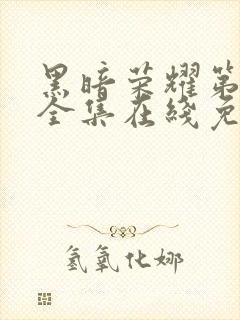 黑暗荣耀第
全集在线免
氢氧化娜